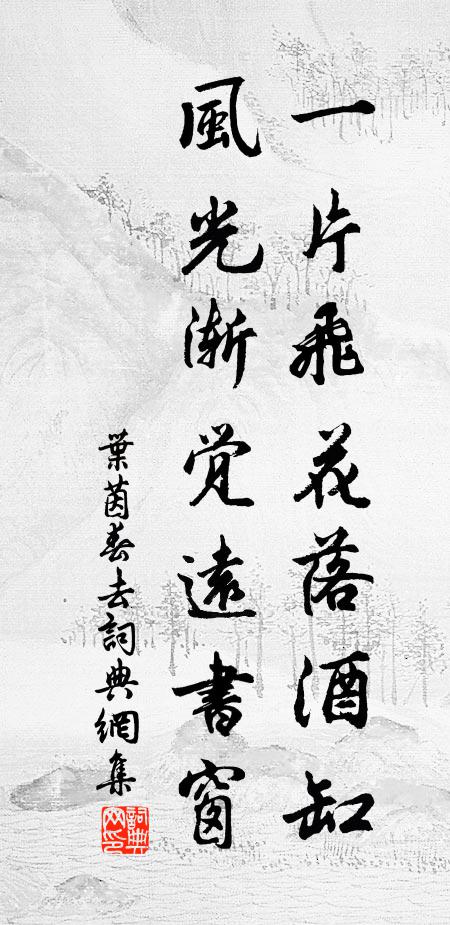 一片飛花落酒缸
風光渐觉遠書窗
葉茵春去詞典網集
詞典网印